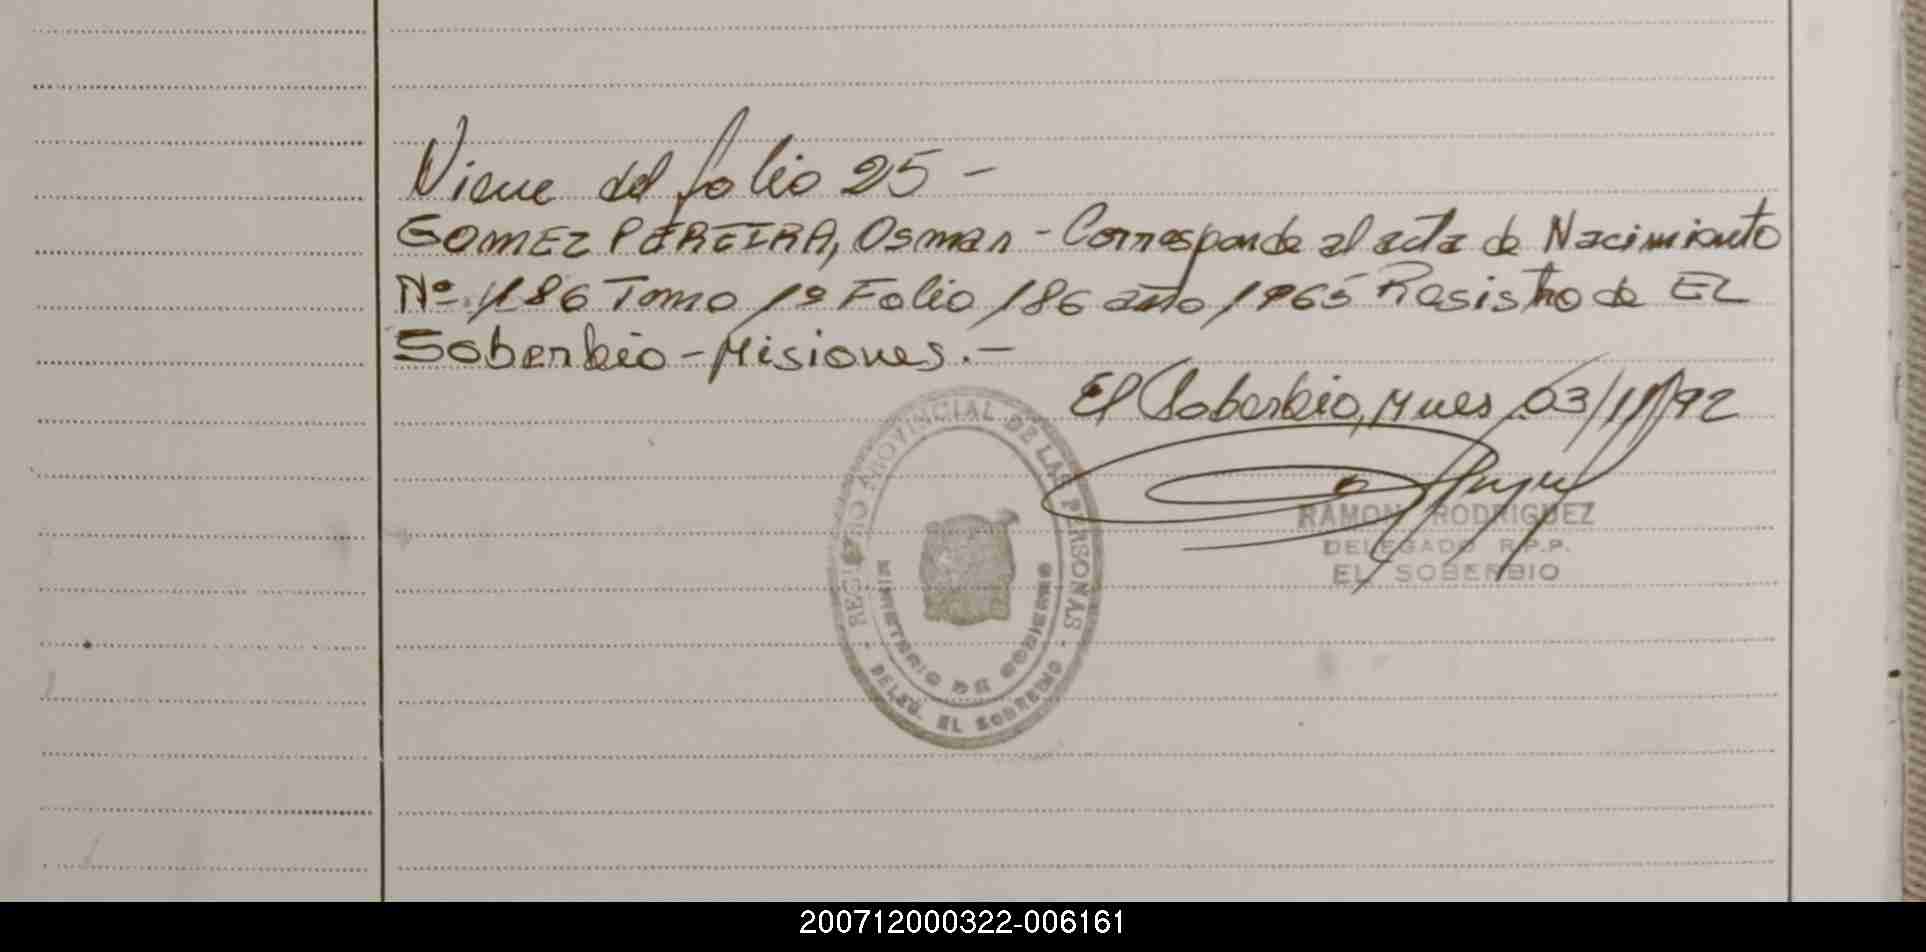 Viene del folio 25 -
GOMEZ PEREIRA, Osman - Corresponde al acta de Nacimiento
Nº 186 Tomo 1º Folio 186 año 1965 Registro de EL
Soberbio - Misiones. -
El Soberbio, Mnes 03/11/92
RAMON RODRIGUEZ
DELEGADO R.P.P.
EL SOBERBIO
REGISTRO PROVINCIAL DE LAS PERSONAS
MINISTERIO DE GOBIERNO
DELEG. EL SOBERBIO
200712000322-006161